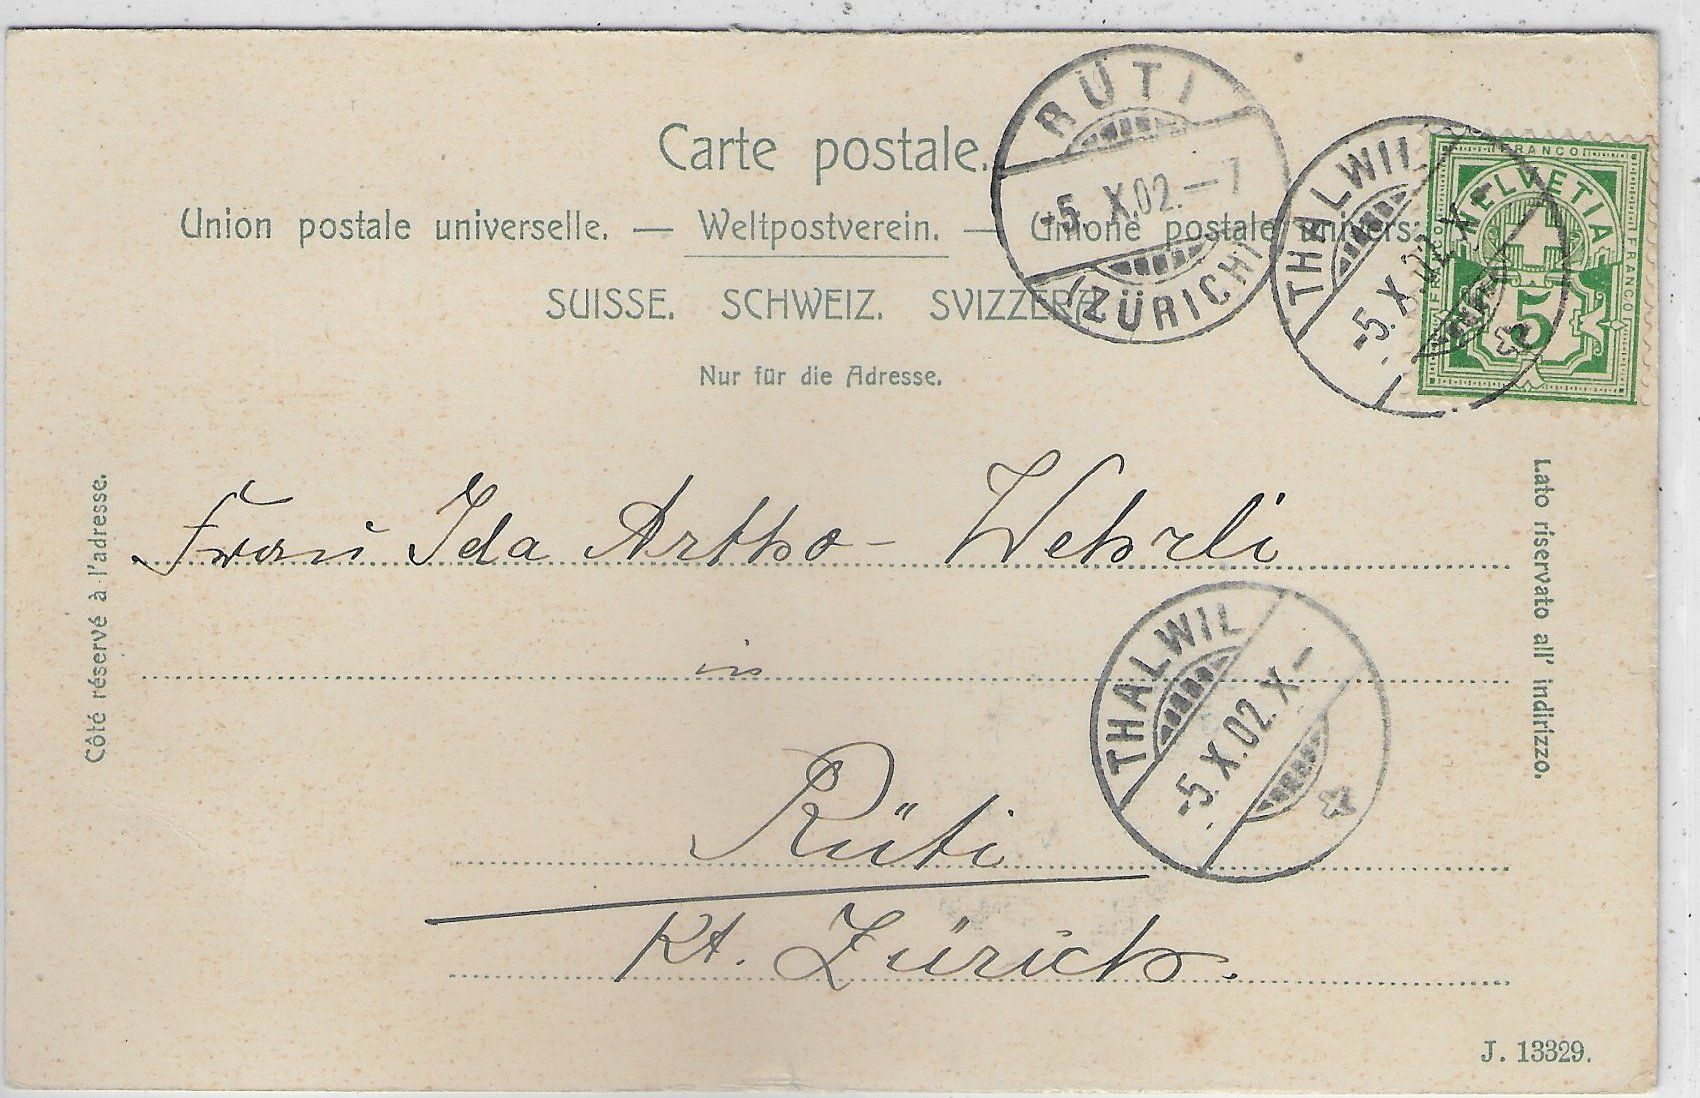 Carte postale.
Union postale universelle. — Weltpostverein. — Unione postale univers:
SUISSE. SCHWEIZ. SVIZZERA
Nur für die Adresse.
RÜTI
-5. X.02.—7
(ZÜRICH)
THALWIL
-5. X.02. X-
FRANCO
HELVETIA
FRANCO
FRANCO
5
Côté réservé à l'adresse.
Lato riservato all' indirizzo.
Frau Ida Artho-Wehrli
in
THALWIL
-5. X.02. X-
Rüti
Kt. Zürich.
J. 13329.